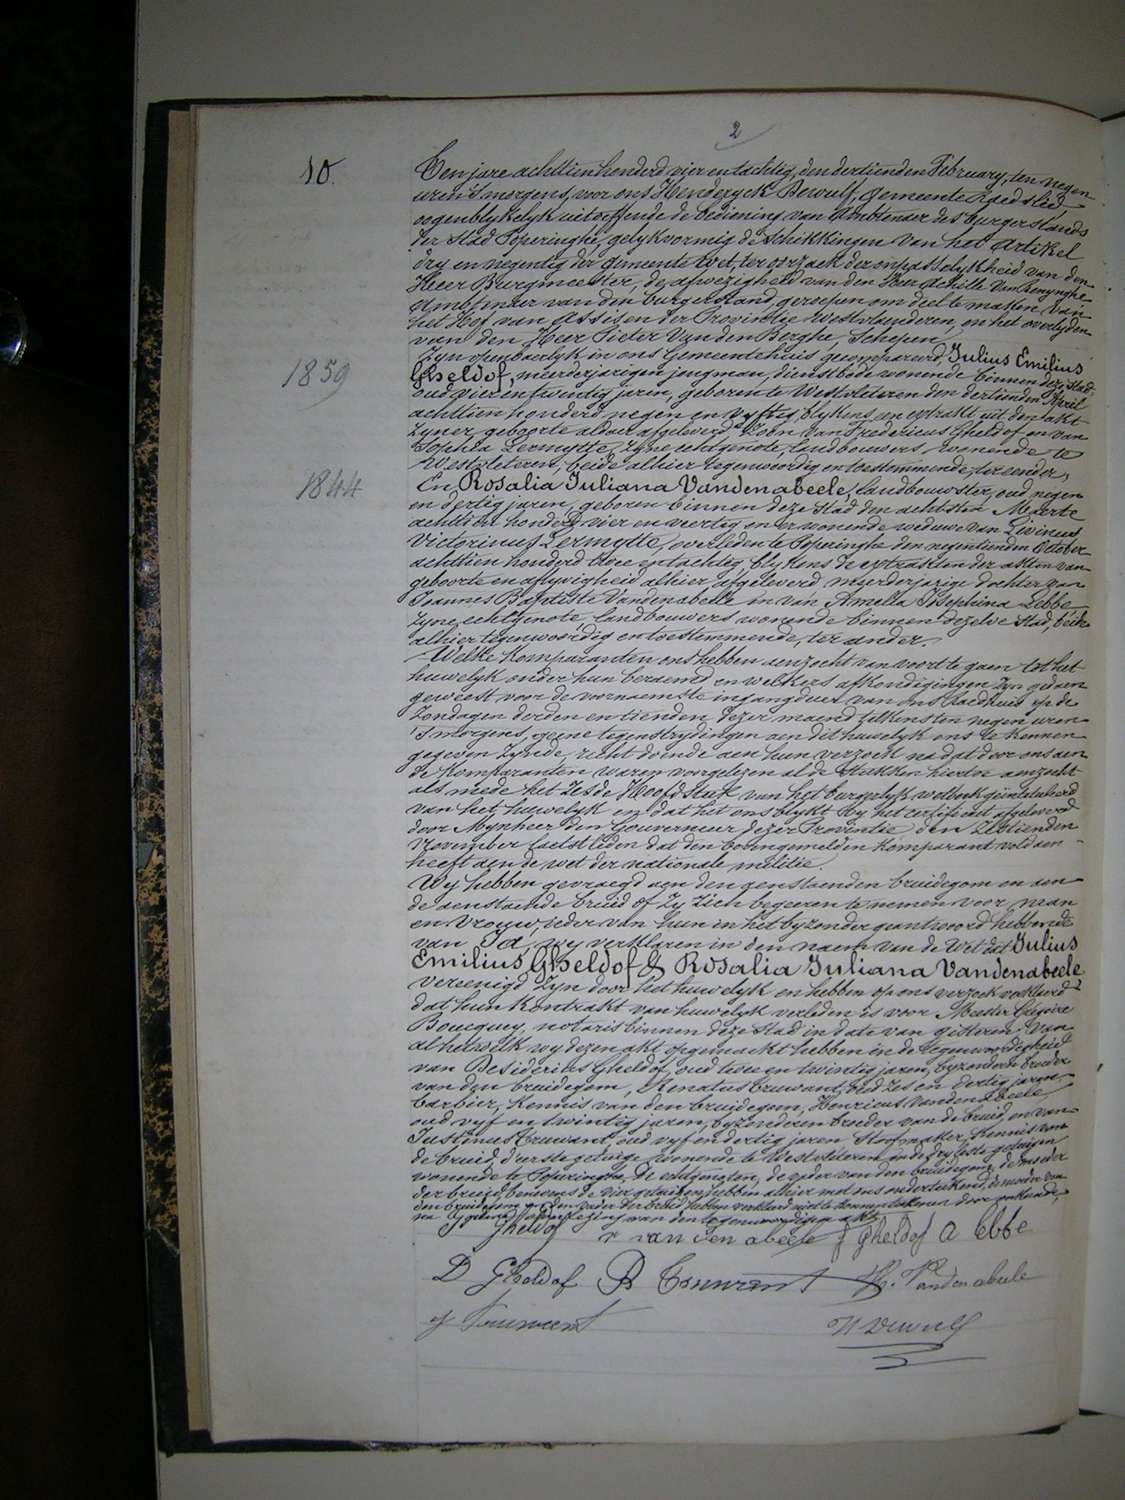 2
10.
Een jare achttien honderd vier en tachtig, den dertienden February, ten negen
uren 's morgens, voor ons Henderyck Dewulf, Gemeente Raedslid
oogenblykelyk uitoeffende de bediening van Ambtenaer des burgerstands
der Stad Poperinghe, gelykvormig de Schikkingen van het artikel
dry en negentig der gemeente wet, ter oorzaek der onpasselykheid van den
Heer Burgmeester, de afwezigheid van den Heer Achille Van Renynghe
Ambtenaer van den burgerstand, geroepen om deel te maken van
het Hof van Assisen der Provintie Westvlaenderen, en het overlyden
van den Heer Pieter Van den Berghe, Schepen
Zyn openbaerlyk in ons Gemeentehuis gecompareerd, Julius Emilius
1859
Gheldof, meerderjarigen jongman, dienstbode wonende binnen deze stad,
oud vier en twintig jaren, geboren te Westvleteren den dertienden April
achttien honderd negen en vyftig blykens een extrakt uit den akt
zyner geboorte aldaer afgeleverd Zoon van Fredericus Gheldof en van
Sophia Lermytte, zyne echtgenote, landbouwers wonende te
Westvleteren, beide alhier tegenwoordig en toestemmende, ter eender,
1844
En Rosalia Juliana Vandenabeele, landbouwster, oud negen
en dertig jaren, geboren binnen deze stad den achtsten Maerte
achttien honderd vier en veertig en er wonende weduwe van Livinus
Victorinus Lermytte, overleden te Poperinghe den negentienden October
achttien honderd twee en tachtig, blykens de extrakten der akten van
geboorte en aflyvigheid alhier afgeleverd meerderjarige dochter van
Joannes Baptiste Vandenabeele en van Amelia Josephina Lebbe
zyne echtgenote, landbouwers wonende binnen dezelve stad, beide
alhier tegenwoordig en toestemmende, ter ander.
Welke Komparanten ons hebben aenzocht van voort te gaen tot het
huwelyk onder hun beraemd en welkers afkondigingen zyn gedaen
geweest voor de voornaemste ingangdeur van ons Raedhuis op de
Zondagen derden en tienden dezer maend telkens ten negen uren
's morgens, geene tegenstrydingen aen dit huwelyk ons te kennen
gegeven zynde, recht doende aen hun verzoek nadat door ons aen
de komparanten waren voorgelezen al de stukken hiertoe aenzocht
als mede het Zesde Hoofdstuk van het burgerlyk wetboek geintituleerd
van het huwelyk en dat het ons blykt by het certificaet afgeleverd
door Mynheer den Gouverneur dezer Provintie den Zestienden
November laetstleden dat den bovengemelden komparant voldaen
heeft aen de wet der nationale militie.
Wy hebben gevraegd aen den aenstaenden bruidegom en aen
de aenstaende bruid of zy zich begeeren te nemen voor man
en vrouw, ieder van hun in het byzonder geantwoord hebbende
van Ja, wy verklaren in den naem van de Wet dat Julius
Emilius Gheldof & Rosalia Juliana Vandenabeele
vereenigd zyn door het huwelyk en hebben op ons verzoek verklaerd
dat hun Kontrakt van huwelyk verleden is voor Meester Gregoire
Boucquey, notaris binnen deze stad in date van gisteren. Van
al hetwelk wy dezen akt opgemaekt hebben in de tegenwoordigheid
van Desiderius Gheldof, oud twee en twintig jaren, byzonderen broeder
van den bruidegom, Renatus Cruwant, oud zes en dertig jaren,
barbier, Kennis van den bruidegom, Henricus Vanden Abeele,
oud vyf en twintig jaren, byzonderen broeder van de bruid, en van
Justinus Cruwant, oud vyf en dertig jaren Stoofmaker, Kennis van
de bruid, d'erste getuige wonende te Westvleteren en de dry leste getuigen
wonende te Poperinghe. De echtgenoten, de vader van den bruidegom, de moeder
der bruid, benevens de vier getuigen hebben alhier met ons onderteekend, de moeder van
den bruidegom en den vader der bruid hebben verklaerd niet te konnen teekenen door onkunde,
na gedane voorlezing van den tegenwoordigen akt.
J Gheldof r van den abeele f Gheldof A lebbe
D Gheldof R Cruwant H. Vanden abeele
J Cruwant H Dewulf